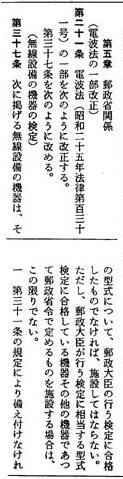 第五章　郵政省関係
（電波法の一部改正）
第二十一条　電波法（昭和二十五年法律第百三十
一号）の一部を次のように改正する。
第三十七条を次のように改める。
（無線設備の機器の検定）
第三十七条　次に掲げる無線設備の機器は、そ
の型式について、郵政大臣の行う検定に合格
したものでなければ、施設してはならない。
ただし、郵政大臣が行う検定に相当する型式
検定に合格している機器その他の機器であつ
て郵政省令で定めるものを施設する場合は、
この限りでない。
一　第三十一条の規定により備え付けなけれ